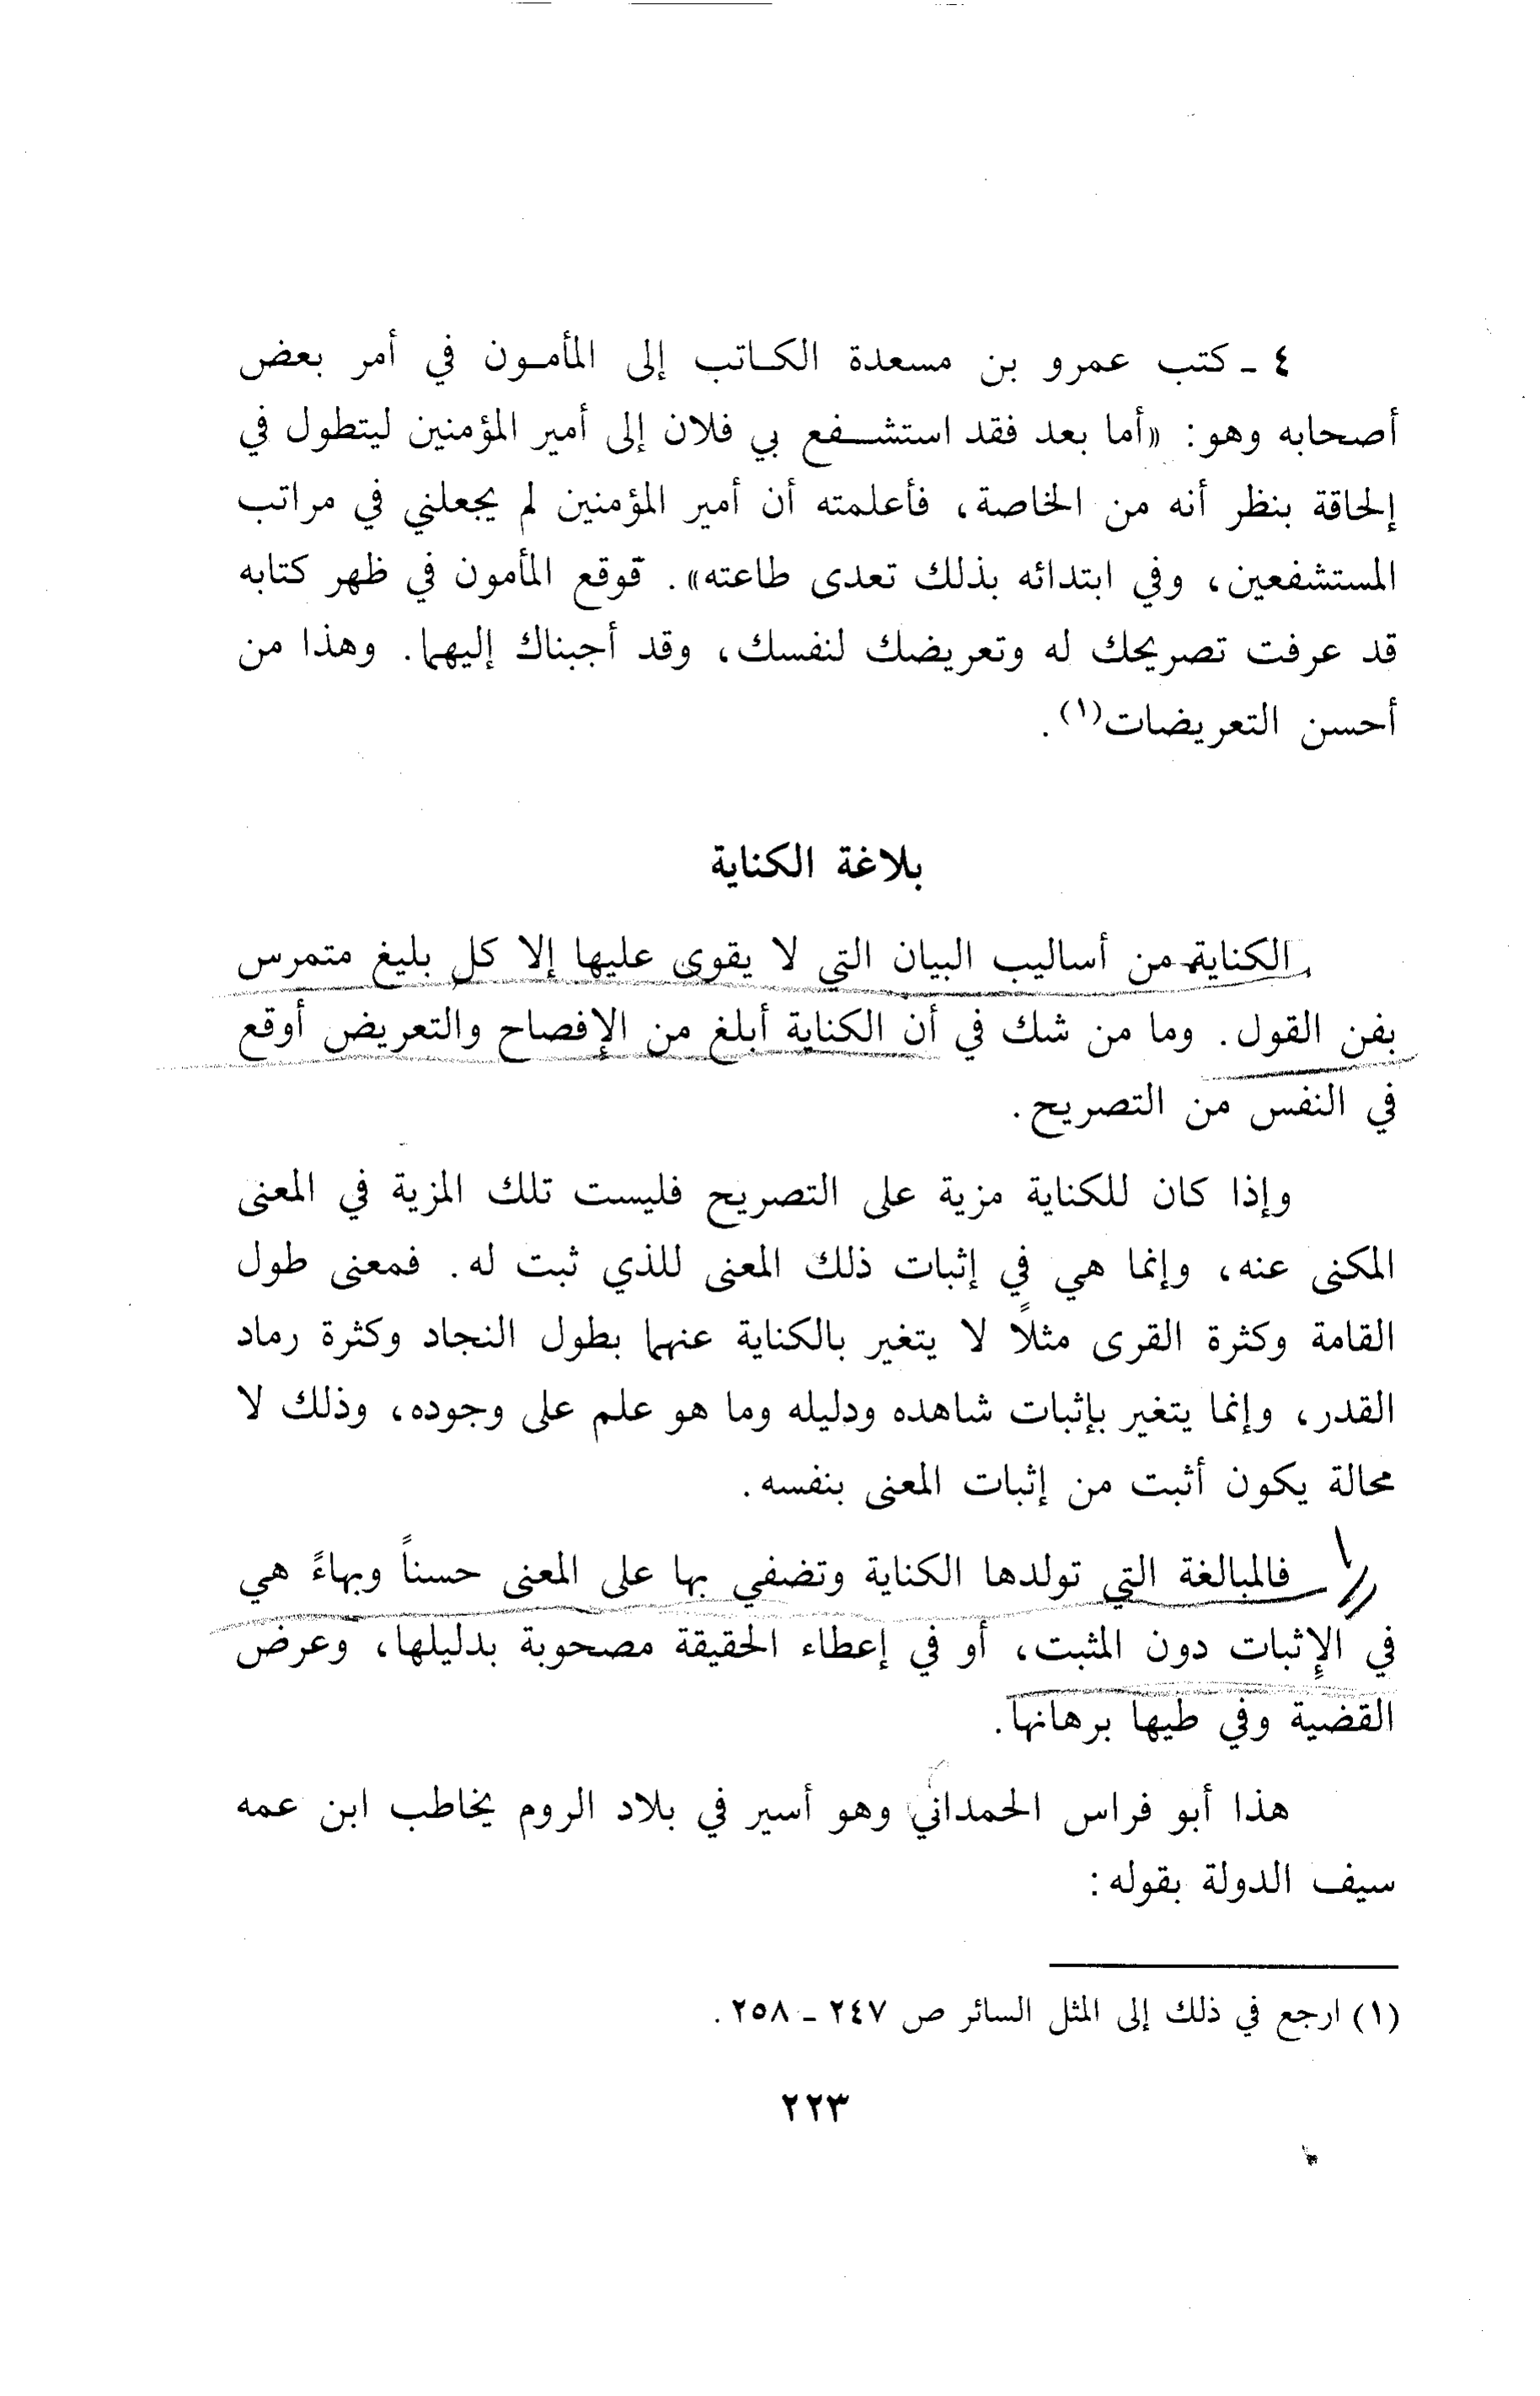 ٤ ـ كتب عمرو بن مسعدة الكاتب إلى المأمون في أمر بعض
أصحابه وهو: «أما بعد فقد استشفع بي فلان إلى أمير المؤمنين ليتطول في
إلحاقة بنظر أنه من الخاصة، فأعلمته أن أمير المؤمنين لم يجعلني في مراتب
المستشفعين، وفي ابتدائه بذلك تعدى طاعته». قوقع المأمون في ظهر كتابه
قد عرفت تصريحك له وتعريضك لنفسك، وقد أجبناك إليهما. وهذا من
أحسن التعريضات(١).
بلاغة الكناية
الكناية من أساليب البيان التي لا يقوى عليها إلا كل بليغ متمرس
بفن القول. وما من شك في أن الكناية أبلغ من الإفصاح والتعريض أوقع
في النفس من التصريح.
وإذا كان للكناية مزية على التصريح فليست تلك المزية في المعنى
المكنى عنه، وإنما هي في إثبات ذلك المعنى للذي ثبت له. فمعنى طول
القامة وكثرة القرى مثلاً لا يتغير بالكناية عنهما بطول النجاد وكثرة رماد
القدر، وإنما يتغير بإثبات شاهده ودليله وما هو علم على وجوده، وذلك لا
محالة يكون أثبت من إثبات المعنى بنفسه.
فالمبالغة التي تولدها الكناية وتضفي بها على المعنى حسناً وبهاءً هي
في الإثبات دون المثبت، أو في إعطاء الحقيقة مصحوبة بدليلها، وعرض
القضية وفي طيها برهانها.
هذا أبو فراس الحمداني وهو أسير في بلاد الروم يخاطب ابن عمه
سيف الدولة بقوله:
(١) ارجع في ذلك إلى المثل السائر ص ٢٤٧ ـ ٢٥٨.
٢٢٣